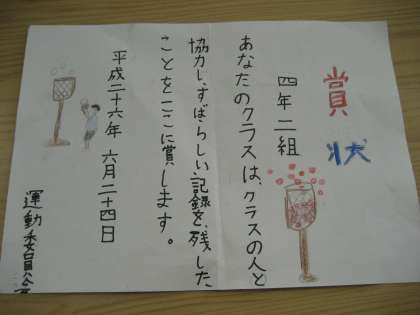 賞状
四年二組
あなたのクラスは、クラスの人と
協力し、すばらしい記録を残した
ことをここに賞します。
平成二十六年 六月二十四日
運動委員会